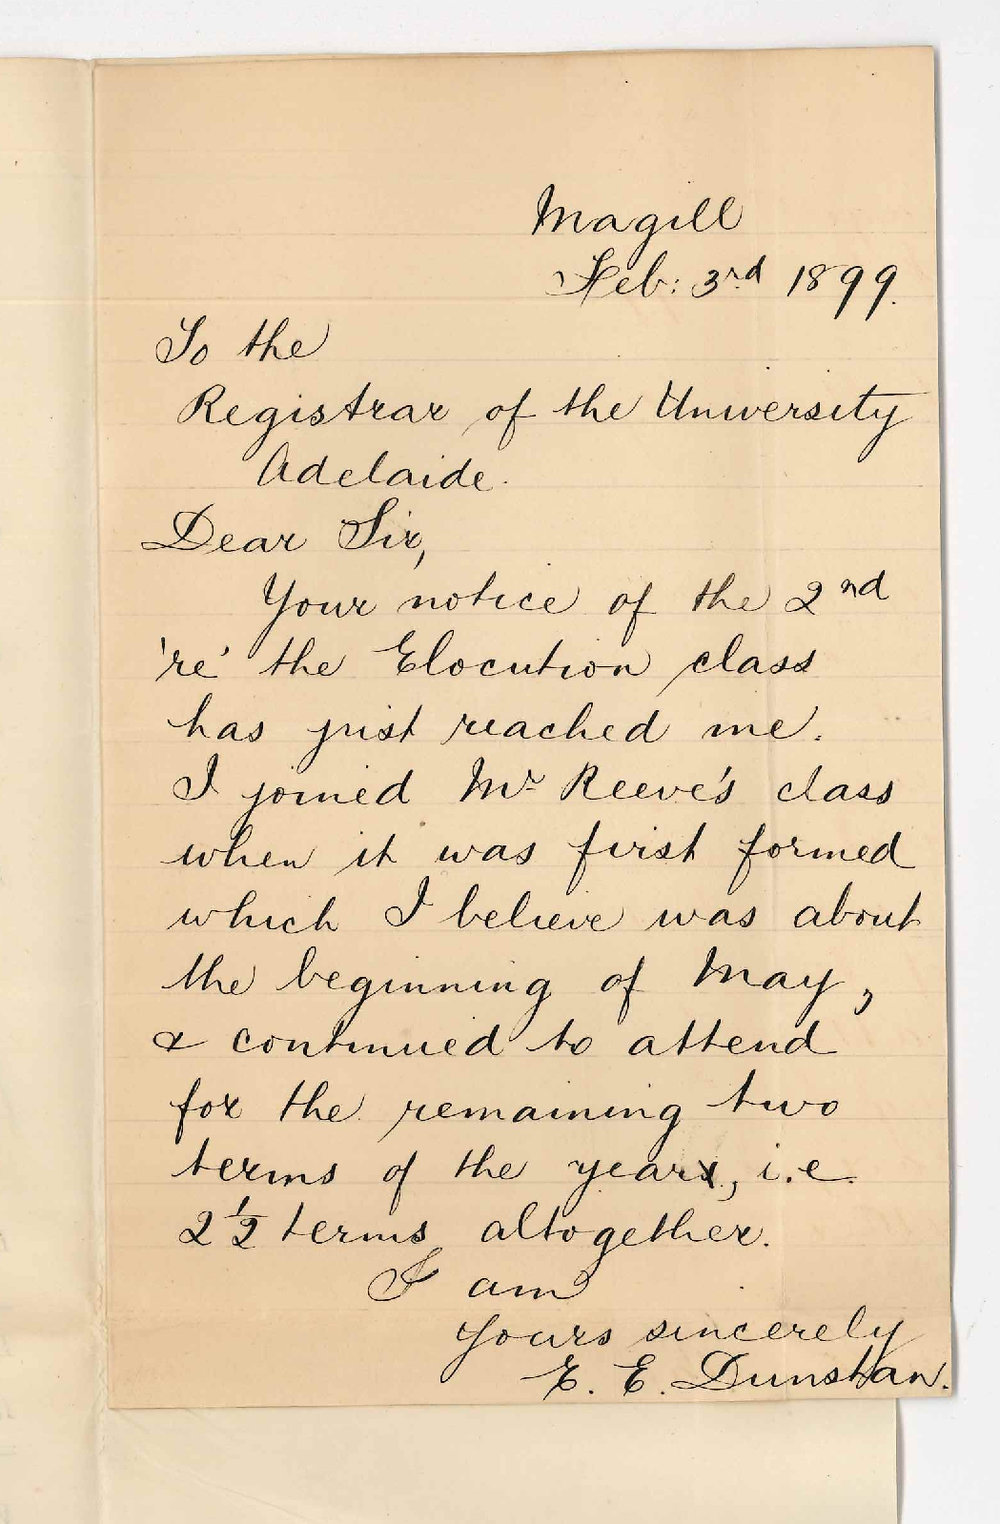 Magill
Feb: 3rd 1899.
To the
Registrar of the University
Adelaide.
Dear Sir,
Your notice of the 2nd
're' the Elocution class
has just reached me.
I joined Mr Reeve's class
when it was first formed
which I believe was about
the beginning of May,
& continued to attend
for the remaining two
terms of the year, i.e.
2 1/2 terms altogether.
I am
Yours sincerely
E. E. Dunstan.